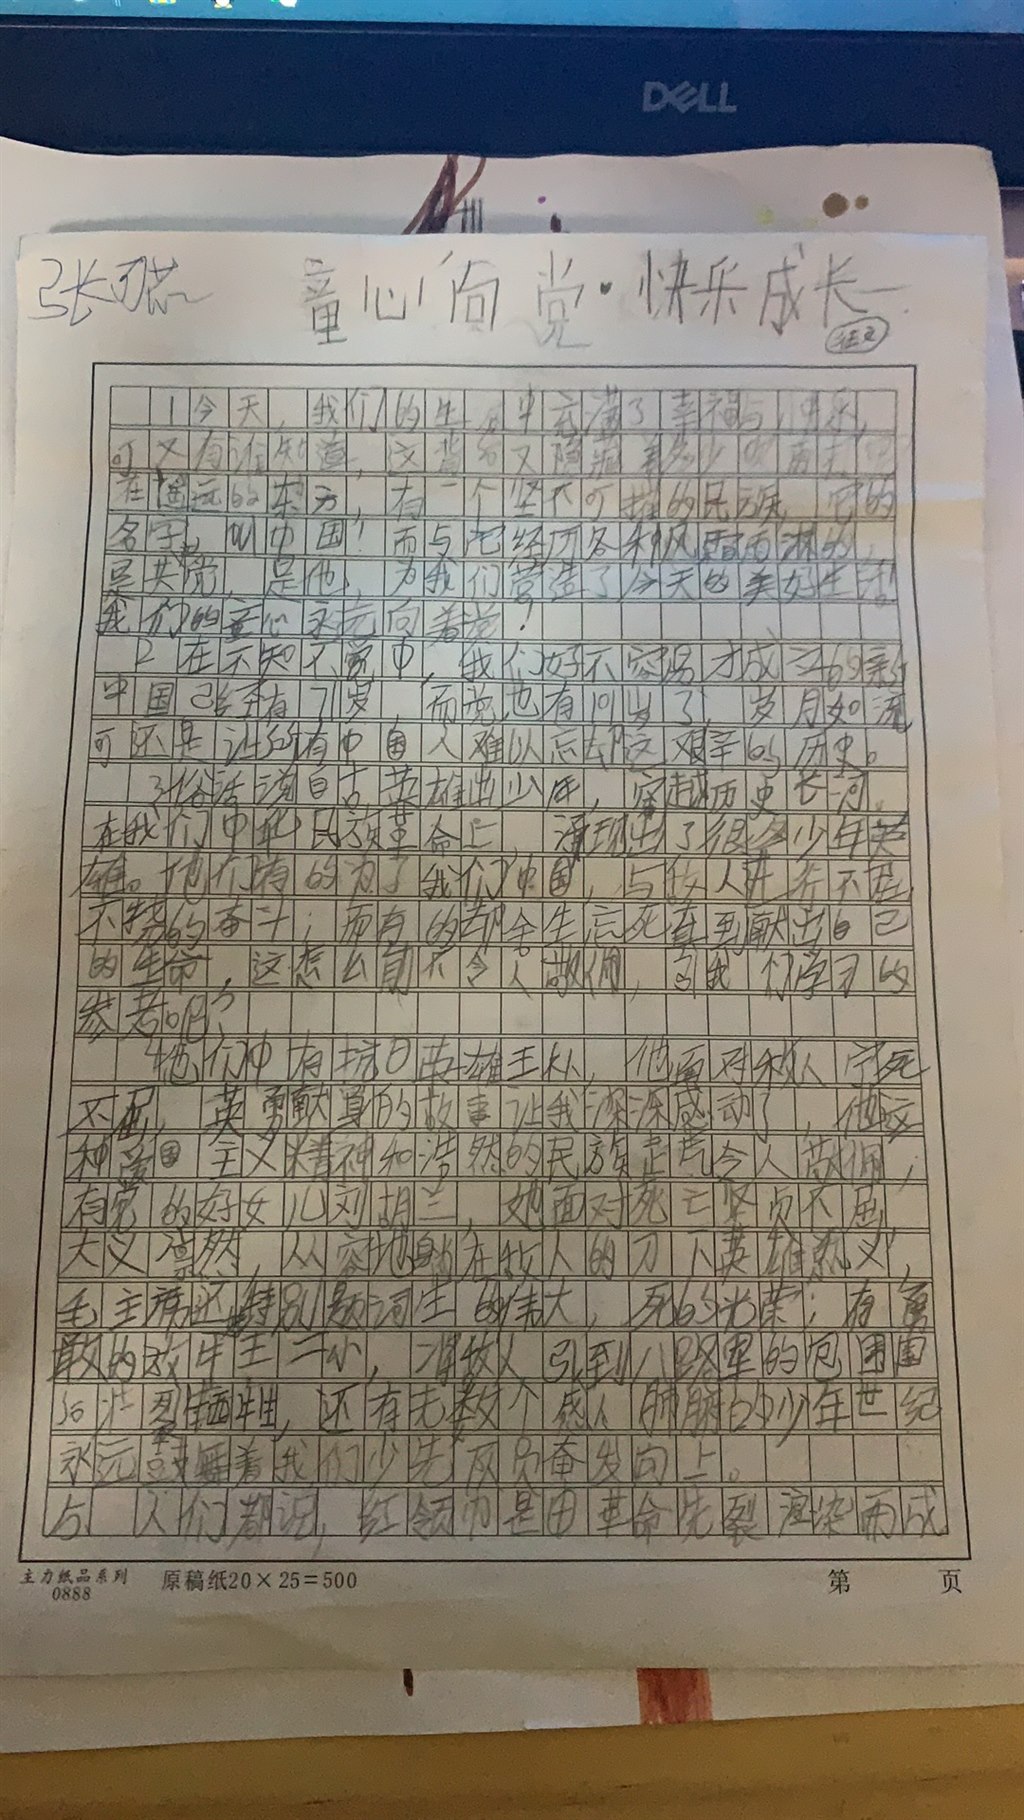 DELL
张
童心向党·快乐成长
征文
1今天,我们的生 中充满了幸福与快乐,
可又有谁知道,这背后又隐藏着多少
在遥远的东方,有一个坚不可摧的民族,它的
名字,叫中国!而与它经历各种风霜雨淋的,
是共党,是他,为我们营造了今天的美好生活!
我们的童心永远向着党!
2在不知不觉中,我们好不容易才成立的新
中国已经有71岁,而党也有101岁了,岁月如流
可还是让所有中国人难以忘却这艰辛的历史。
3俗话说自古英雄出少年,穿越历史长河
在我们中华民族革命上,涌现出了很多少年英
雄。他们有的为了我们中国,与敌人进行不屈
不挠的奋斗;而有的却舍生忘死直到献出自己
的生命,这怎么能不令人敬佩,与我们学习的
参考呢?
4他们中有抗日英雄王朴,他面对敌人宁死
不屈,英勇献身的故事让我深深感动了,他这
种爱国主义精神和浩然的民族志气令人敬佩,
有党的好女儿刘胡兰,她面对死亡坚贞不屈,
大义凛然,从容地躺在敌人的刀下英雄就义,
毛主席还特别题词生的伟大,死的光荣;有勇
敢的放牛王二小,将敌人引到八路军的包围圈
后壮烈牺牲,还有无数个感人肺腑的少年世纪
永远鼓舞着我们少先队员奋发向上。
5 人们都说,红领巾是由革命先裂渲染而成
主力纸品系列
0888
原稿纸20×25=500
第 页